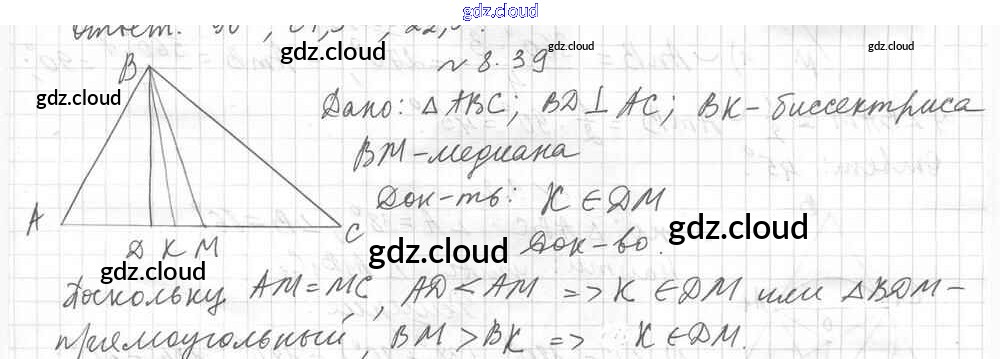 gdz.cloud
Ответ: 90°, 67,5°, 22,5°.
gdz.cloud
№ 8.39
gdz.cloud
B
gdz.cloud
Дано: △ABC; BD⊥AC; BK-биссектриса
gdz.cloud
BM-медиана
Док-ть: K∈DM
A
C
gdz.cloud
Док-во.
gdz.cloud
D K M
gdz.cloud
gdz.cloud
Поскольку AM=MC, AD<AM => K∈DM или △BDM-
gdz.cloud
прямоугольный, BM>BK => K∈DM.